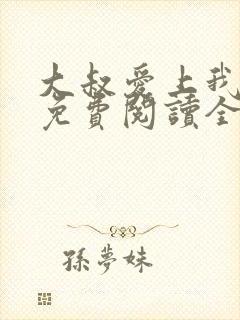 大叔愛上我
免費閱讀全
孫夢妹